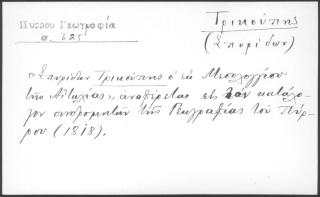 Πύρρου Γεωγραφία
σ. 325
Τρικούπης
(Σπυρίδων)
«Σπυρίδων Τρικούπης ὁ ἐκ Μεσολογγίου
τῆς Αἰτωλίας», ἀναφέρεται εἰς τὸν κατάλο-
γον συνδρομητῶν τῆς Γεωγραφίας τοῦ Πύρ-
ρου (1818).